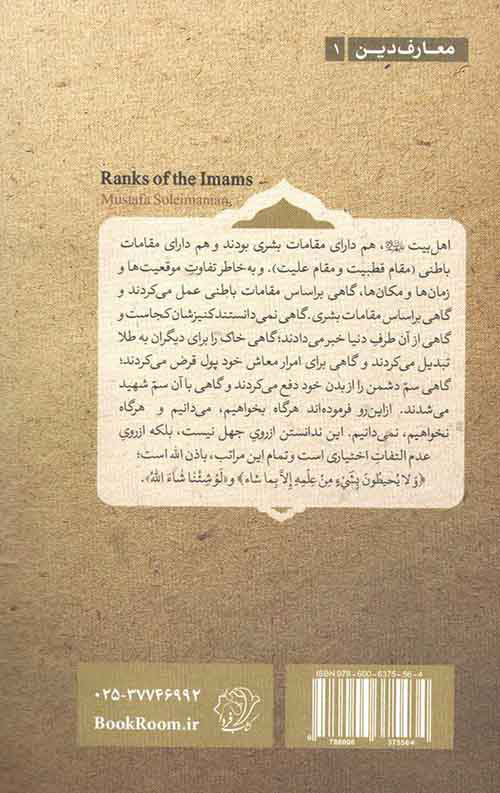 معارف دین | ۱
Ranks of the Imams
Mustafa Soleimanian
اهل‌بیت علیهم‌السلام، هم دارای مقامات بشری بودند و هم دارای مقامات
باطنی (مقام قطبیت و مقام علیت). و به خاطر تفاوتِ موقعیت‌ها و
زمان‌ها و مکان‌ها، گاهی براساس مقامات باطنی عمل می‌کردند و
گاهی براساس مقامات بشری. گاهی نمی‌دانستند کنیزشان کجاست و
گاهی از آن طرفِ دنیا خبر می‌دادند؛ گاهی خاک را برای دیگران به طلا
تبدیل می‌کردند و گاهی برای امرار معاش خود پول قرض می‌کردند؛
گاهی سمّ دشمن را از بدن خود دفع می‌کردند و گاهی با آن سمّ شهید
می‌شدند. ازاین‌رو فرموده‌اند هرگاه بخواهیم، می‌دانیم و هرگاه
نخواهیم، نمی‌دانیم. این ندانستن ازرویِ جهل نیست، بلکه ازرویِ
عدم التفاتِ اختیاری است و تمام این مراتب، باذن الله است؛
﴿وَ لا یُحیطُونَ بِشَیْءٍ مِنْ عِلْمِهِ إِلاَّ بِما شاء﴾ و «لَوْ شِئْنَا شَاءَ اللهُ».
۰۲۵-۳۷۷۴۶۹۹۲
BookRoom.ir
ISBN 978-600-6375-56-4
9 786006 375564